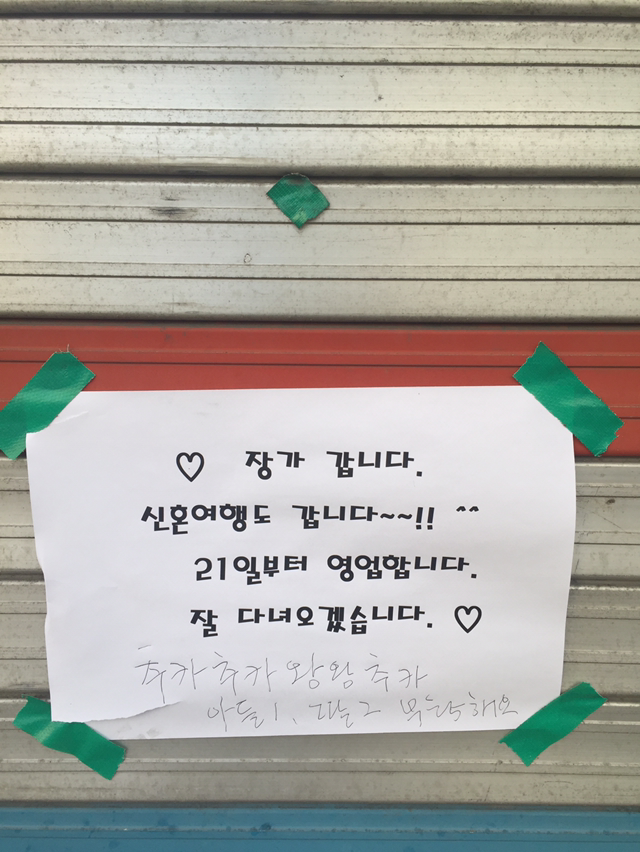 ♡ 장가 갑니다.
신혼여행도 갑니다~~!! ^^
21일부터 영업합니다.
잘 다녀오겠습니다. ♡
추카추카 왕왕 추카
아들1, 따알2 부탁해요